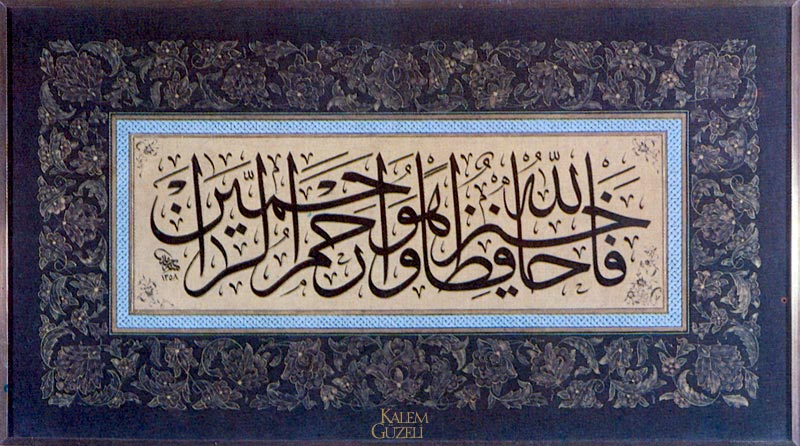 فَاللّٰهُ خَيْرٌ حَافِظًا وَهُوَ اَرْحَمُ الرَّاحِمِينَ
١٣٥٨
KALEM
GÜZELİ